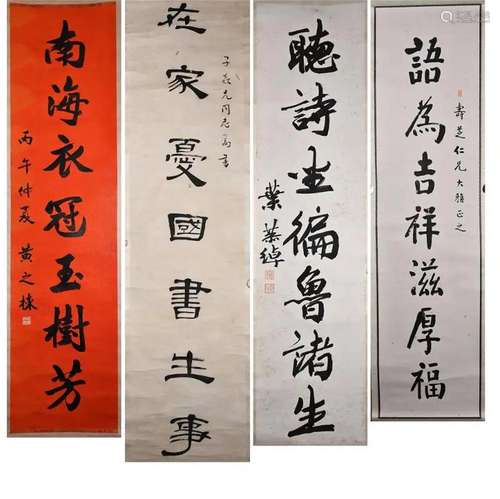 壽芝仁兄大雅正之
語為吉祥滋厚福
聽詩坐徧魯諸生
葉恭綽
在家憂國書生事
南海衣冠玉樹芳
丙午仲夏 黃之